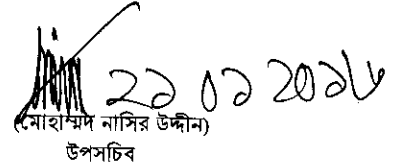 ২১ ০১ ২০১৮
(মোহাম্মদ নাসির উদ্দীন)
উপসচিব